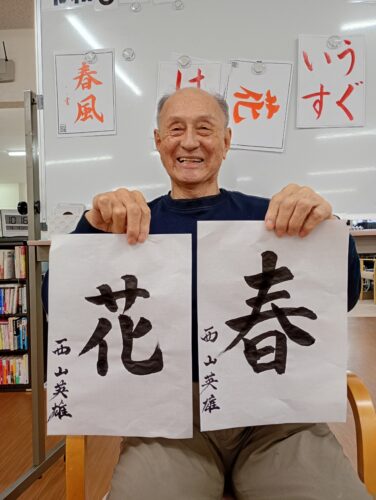 春風
は
花
いうすぐ
春
西山英雄
花
西山英雄